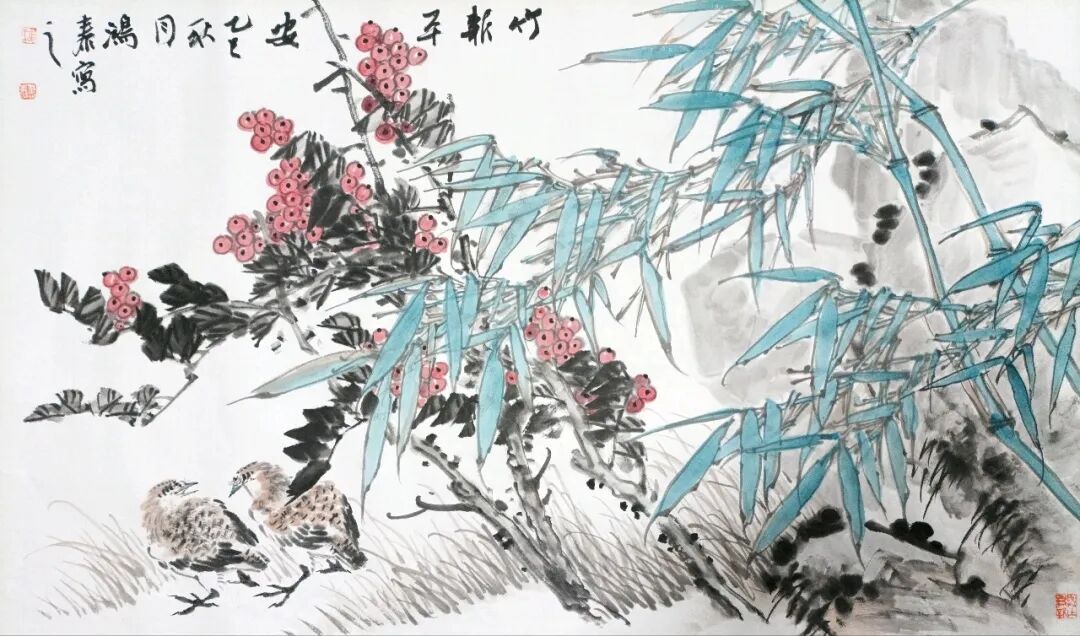 竹報平安
乙巳秋月鴻泰寫之